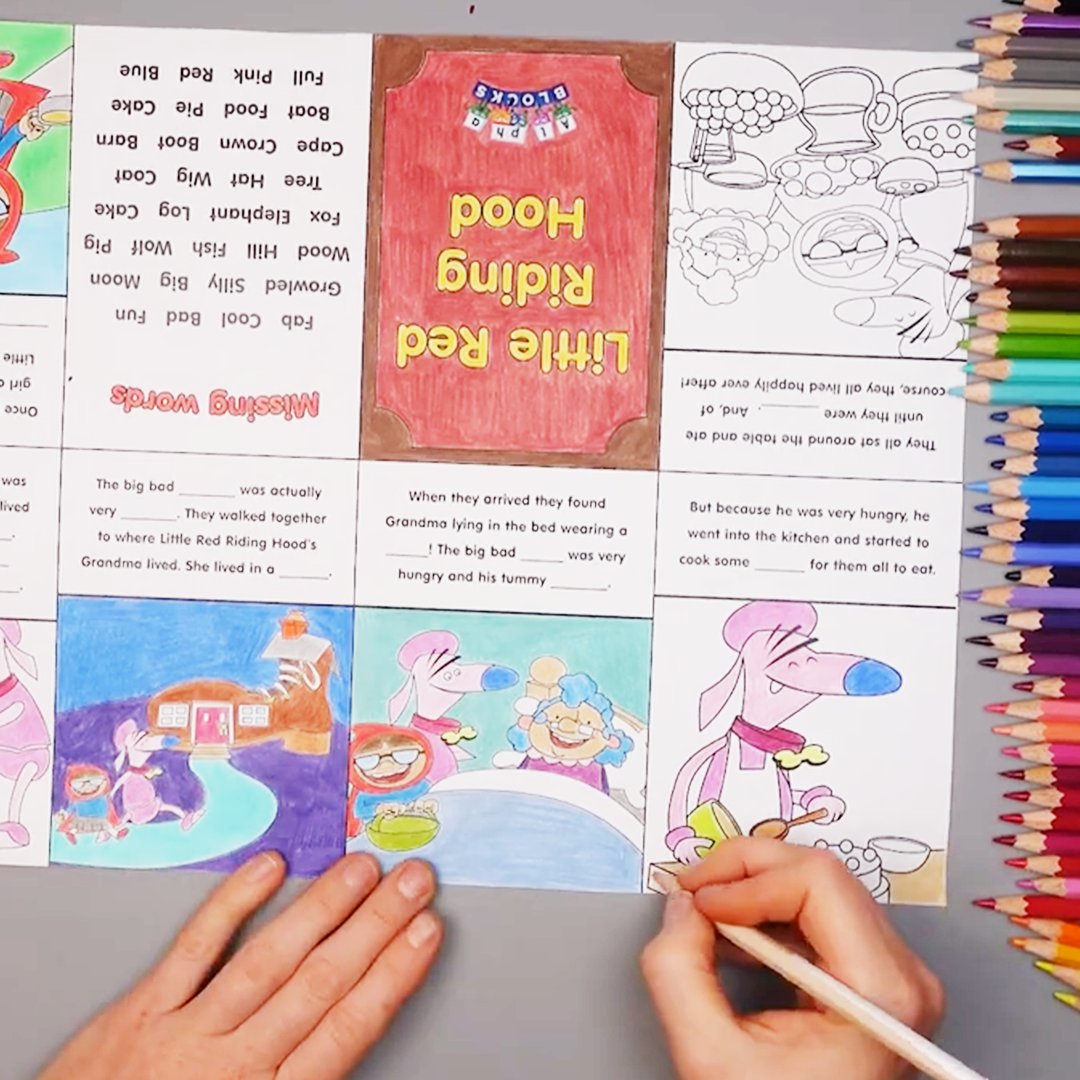 Once
girl
Little
Missing words
Fab Cool Bad Fun
Growled Silly Big Moon
Wood Hill Fish Wolf Pig
Fox Elephant Log Cake
Tree Hat Wig Coat
Cape Crown Boot Barn
Boat Food Pie Cake
Full Pink Red Blue
Little Red
Riding
Hood
Alpha
BLOCKS
They all sat around the table and ate
until they were ______. And, of
course, they all lived happily ever after!
was
lived
The big bad ______ was actually
very ______. They walked together
to where Little Red Riding Hood's
Grandma lived. She lived in a ______.
When they arrived they found
Grandma lying in the bed wearing a
______! The big bad ______ was very
hungry and his tummy ______.
But because he was very hungry, he
went into the kitchen and started to
cook some ______ for them all to eat.